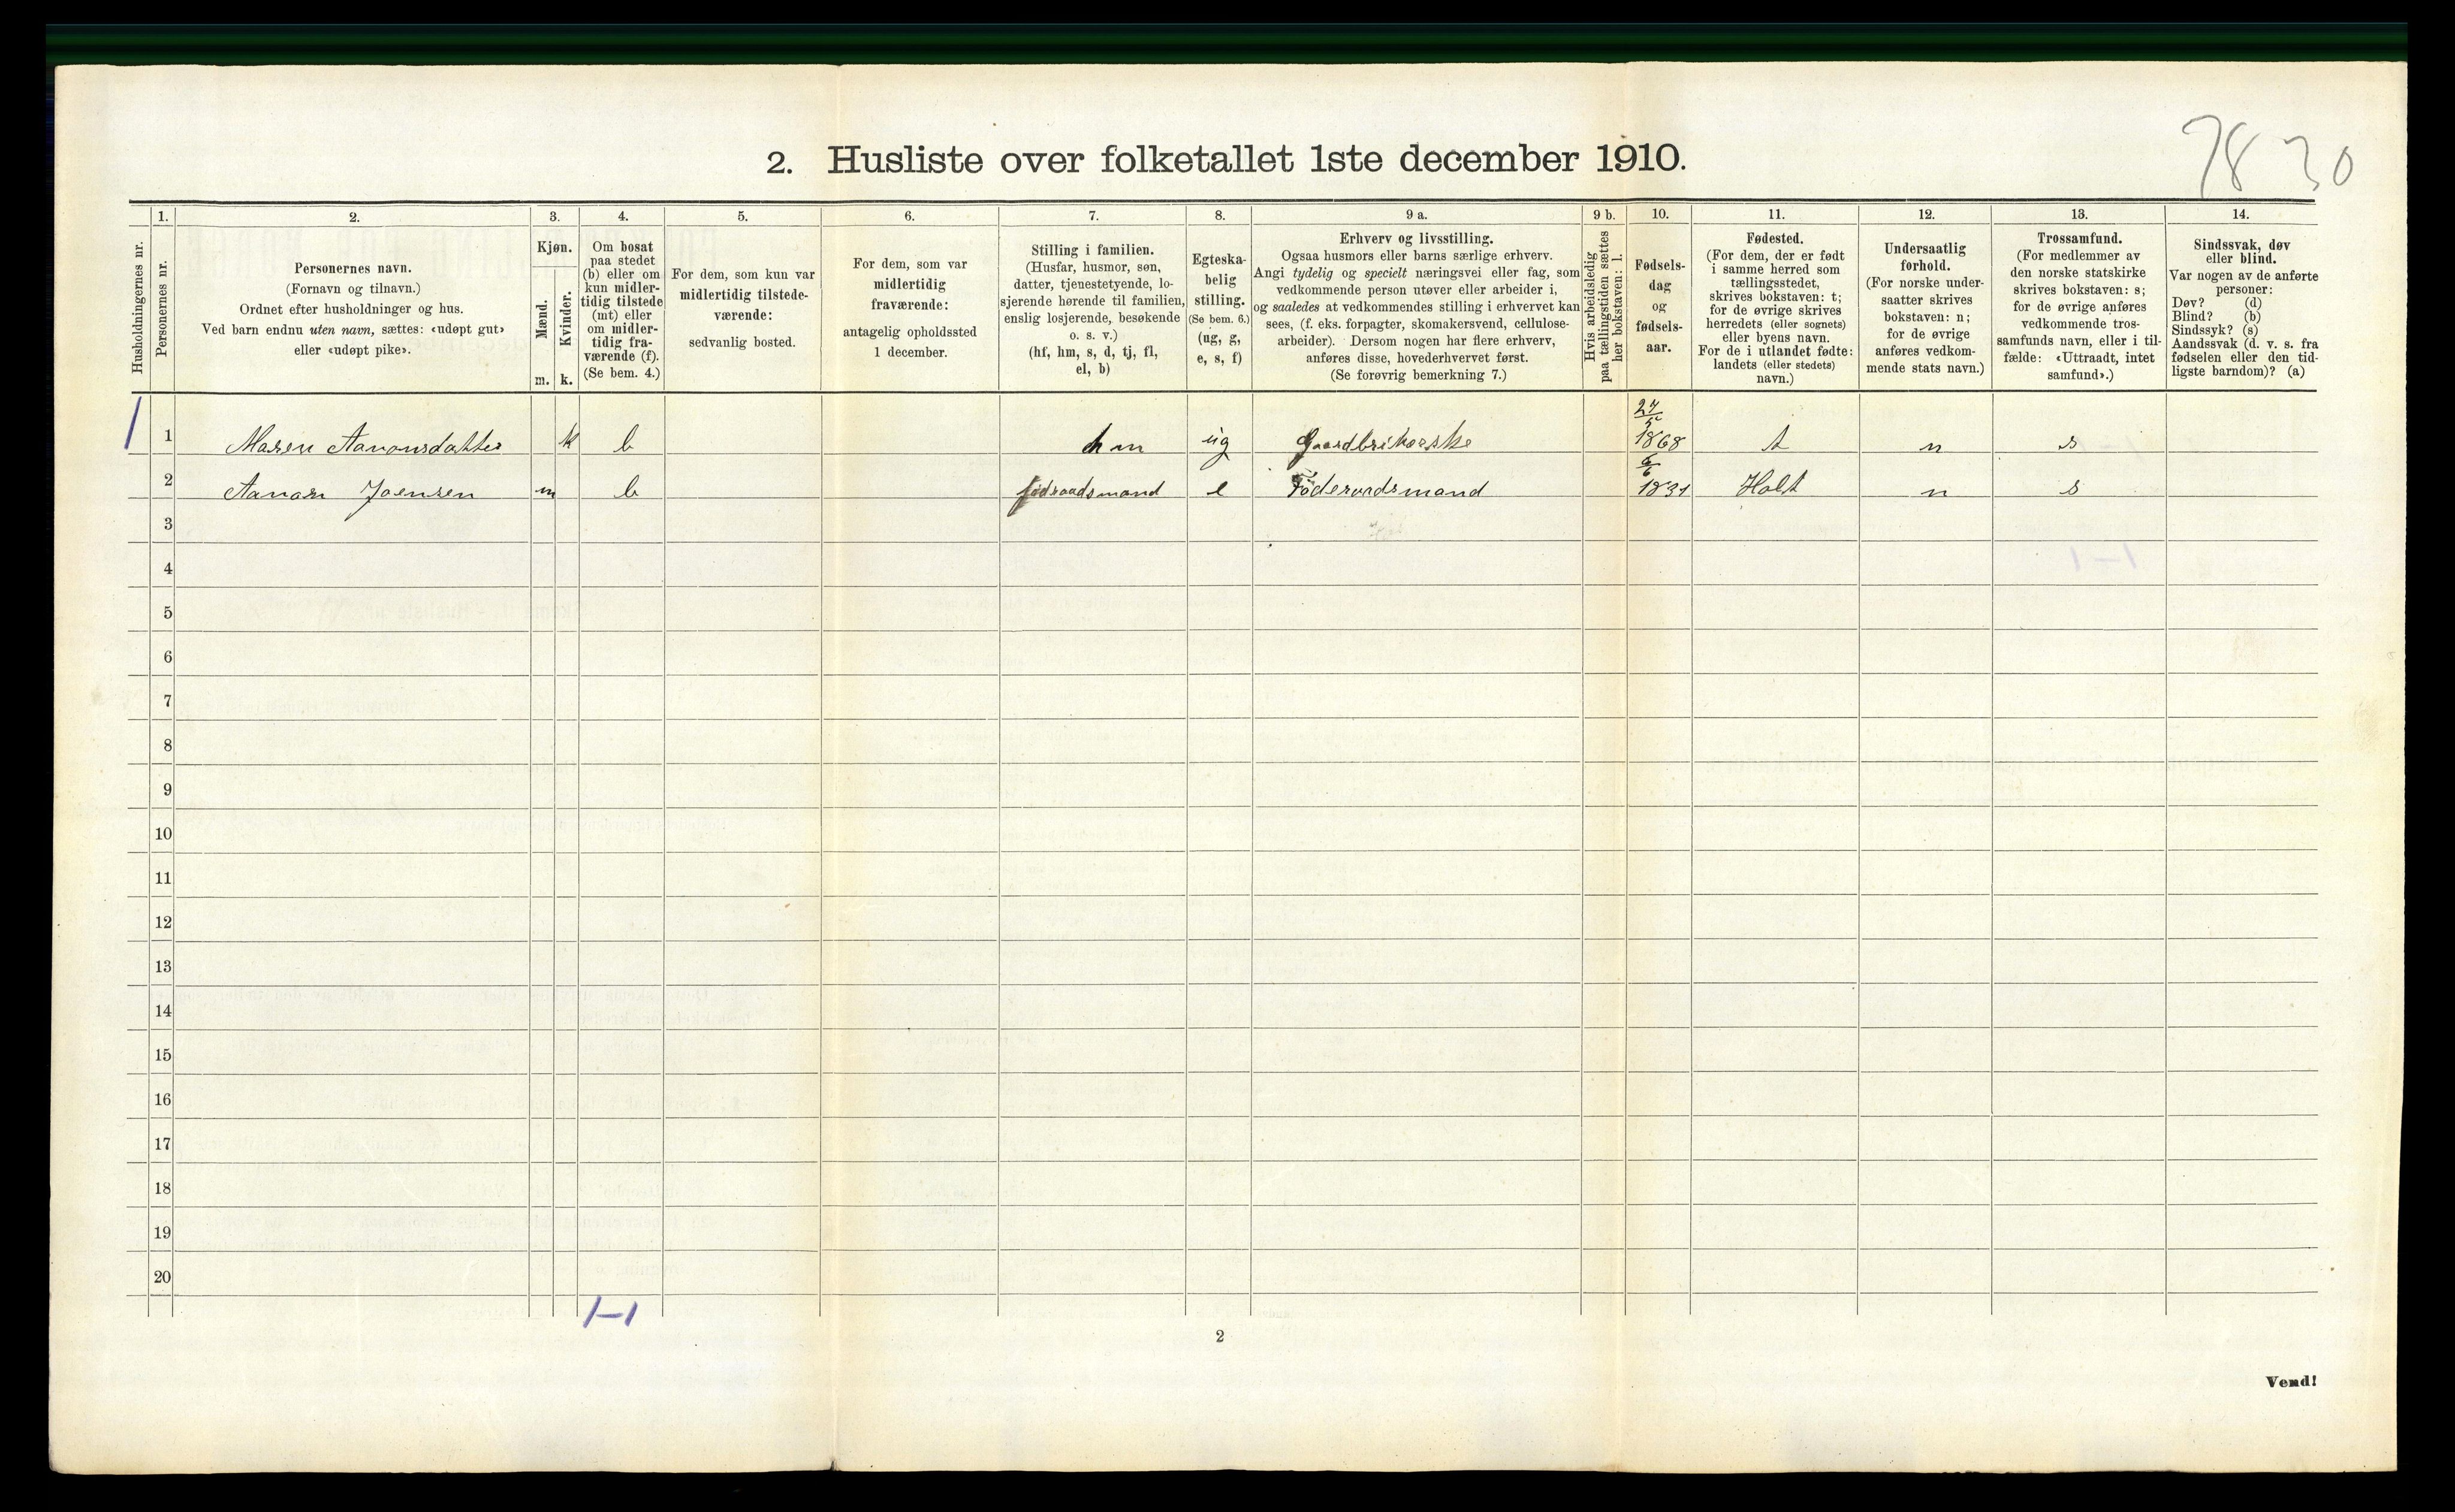 7830
2. Husliste over folketallet 1ste december 1910.
Husholdningernes nr.
1.
Personernes nr.
2.
Personernes navn.
(Fornavn og tilnavn.)
Ordnet efter husholdninger og hus.
Ved barn endnu uten navn, sættes: «udøpt gut»
eller «udøpt pike».
3.
Kjøn.
Mænd.
Kvinder.
m. k.
4.
Om bosat
paa stedet
(b) eller om
kun midler-
tidig tilstede
(mt) eller
om midler-
tidig fra-
værende (f).
(Se bem. 4.)
5.
For dem, som kun var
midlertidig tilstede-
værende:
sedvanlig bosted.
6.
For dem, som var
midlertidig
fraværende:
antagelig opholdssted
1 december.
7.
Stilling i familien.
(Husfar, husmor, søn,
datter, tjenestetyende, lo-
sjerende hørende til familien,
enslig losjerende, besøkende
o. s. v.)
(hf, hm, s, d, tj, fl,
el, b)
8.
Egteska-
belig
stilling.
(Se bem. 6.)
(ug, g,
e, s, f)
9 a.
Erhverv og livsstilling.
Ogsaa husmors eller barns særlige erhverv.
Angi tydelig og specielt næringsvei eller fag, som
vedkommende person utøver eller arbeider i,
og saaledes at vedkommendes stilling i erhvervet kan
sees, (f. eks. forpagter, skomakersvend, cellulose-
arbeider). Dersom nogen har flere erhverv,
anføres disse, hovederhvervet først.
(Se forøvrig bemerkning 7.)
9 b.
Hvis arbeidsledig
paa tællingstiden sættes
her bokstaven: l.
10.
Fødsels-
dag
og
fødsels-
aar.
11.
Fødested.
(For dem, der er født
i samme herred som
tællingsstedet,
skrives bokstaven: t;
for de øvrige skrives
herredets (eller sognets)
eller byens navn.
For de i utlandet fødte:
landets (eller stedets)
navn.)
12.
Undersaatlig
forhold.
(For norske under-
saatter skrives
bokstaven: n;
for de øvrige
anføres vedkom-
mende stats navn.)
13.
Trossamfund.
(For medlemmer av
den norske statskirke
skrives bokstaven: s;
for de øvrige anføres
vedkommende tros-
samfunds navn, eller i til-
fælde: «Uttraadt, intet
samfund».)
14.
Sindssvak, døv
eller blind.
Var nogen av de anførte
personer:
Døv? (d)
Blind? (b)
Sindssyk? (s)
Aandssvak (d. v. s. fra
fødselen eller den tid-
ligste barndom)? (a)
1 1 Maren Aanonsdatter k b hm ug Gaardbrukerske 27/5 1868 t n s
2 Aanon Joensen m b föderaadsmand e Föderaadsmand 6/6 1831 Holt n s
3
4
5
6
7
8
9
10
11
12
13
14
15
16
17
18
19
20
1-1
2
Vend!